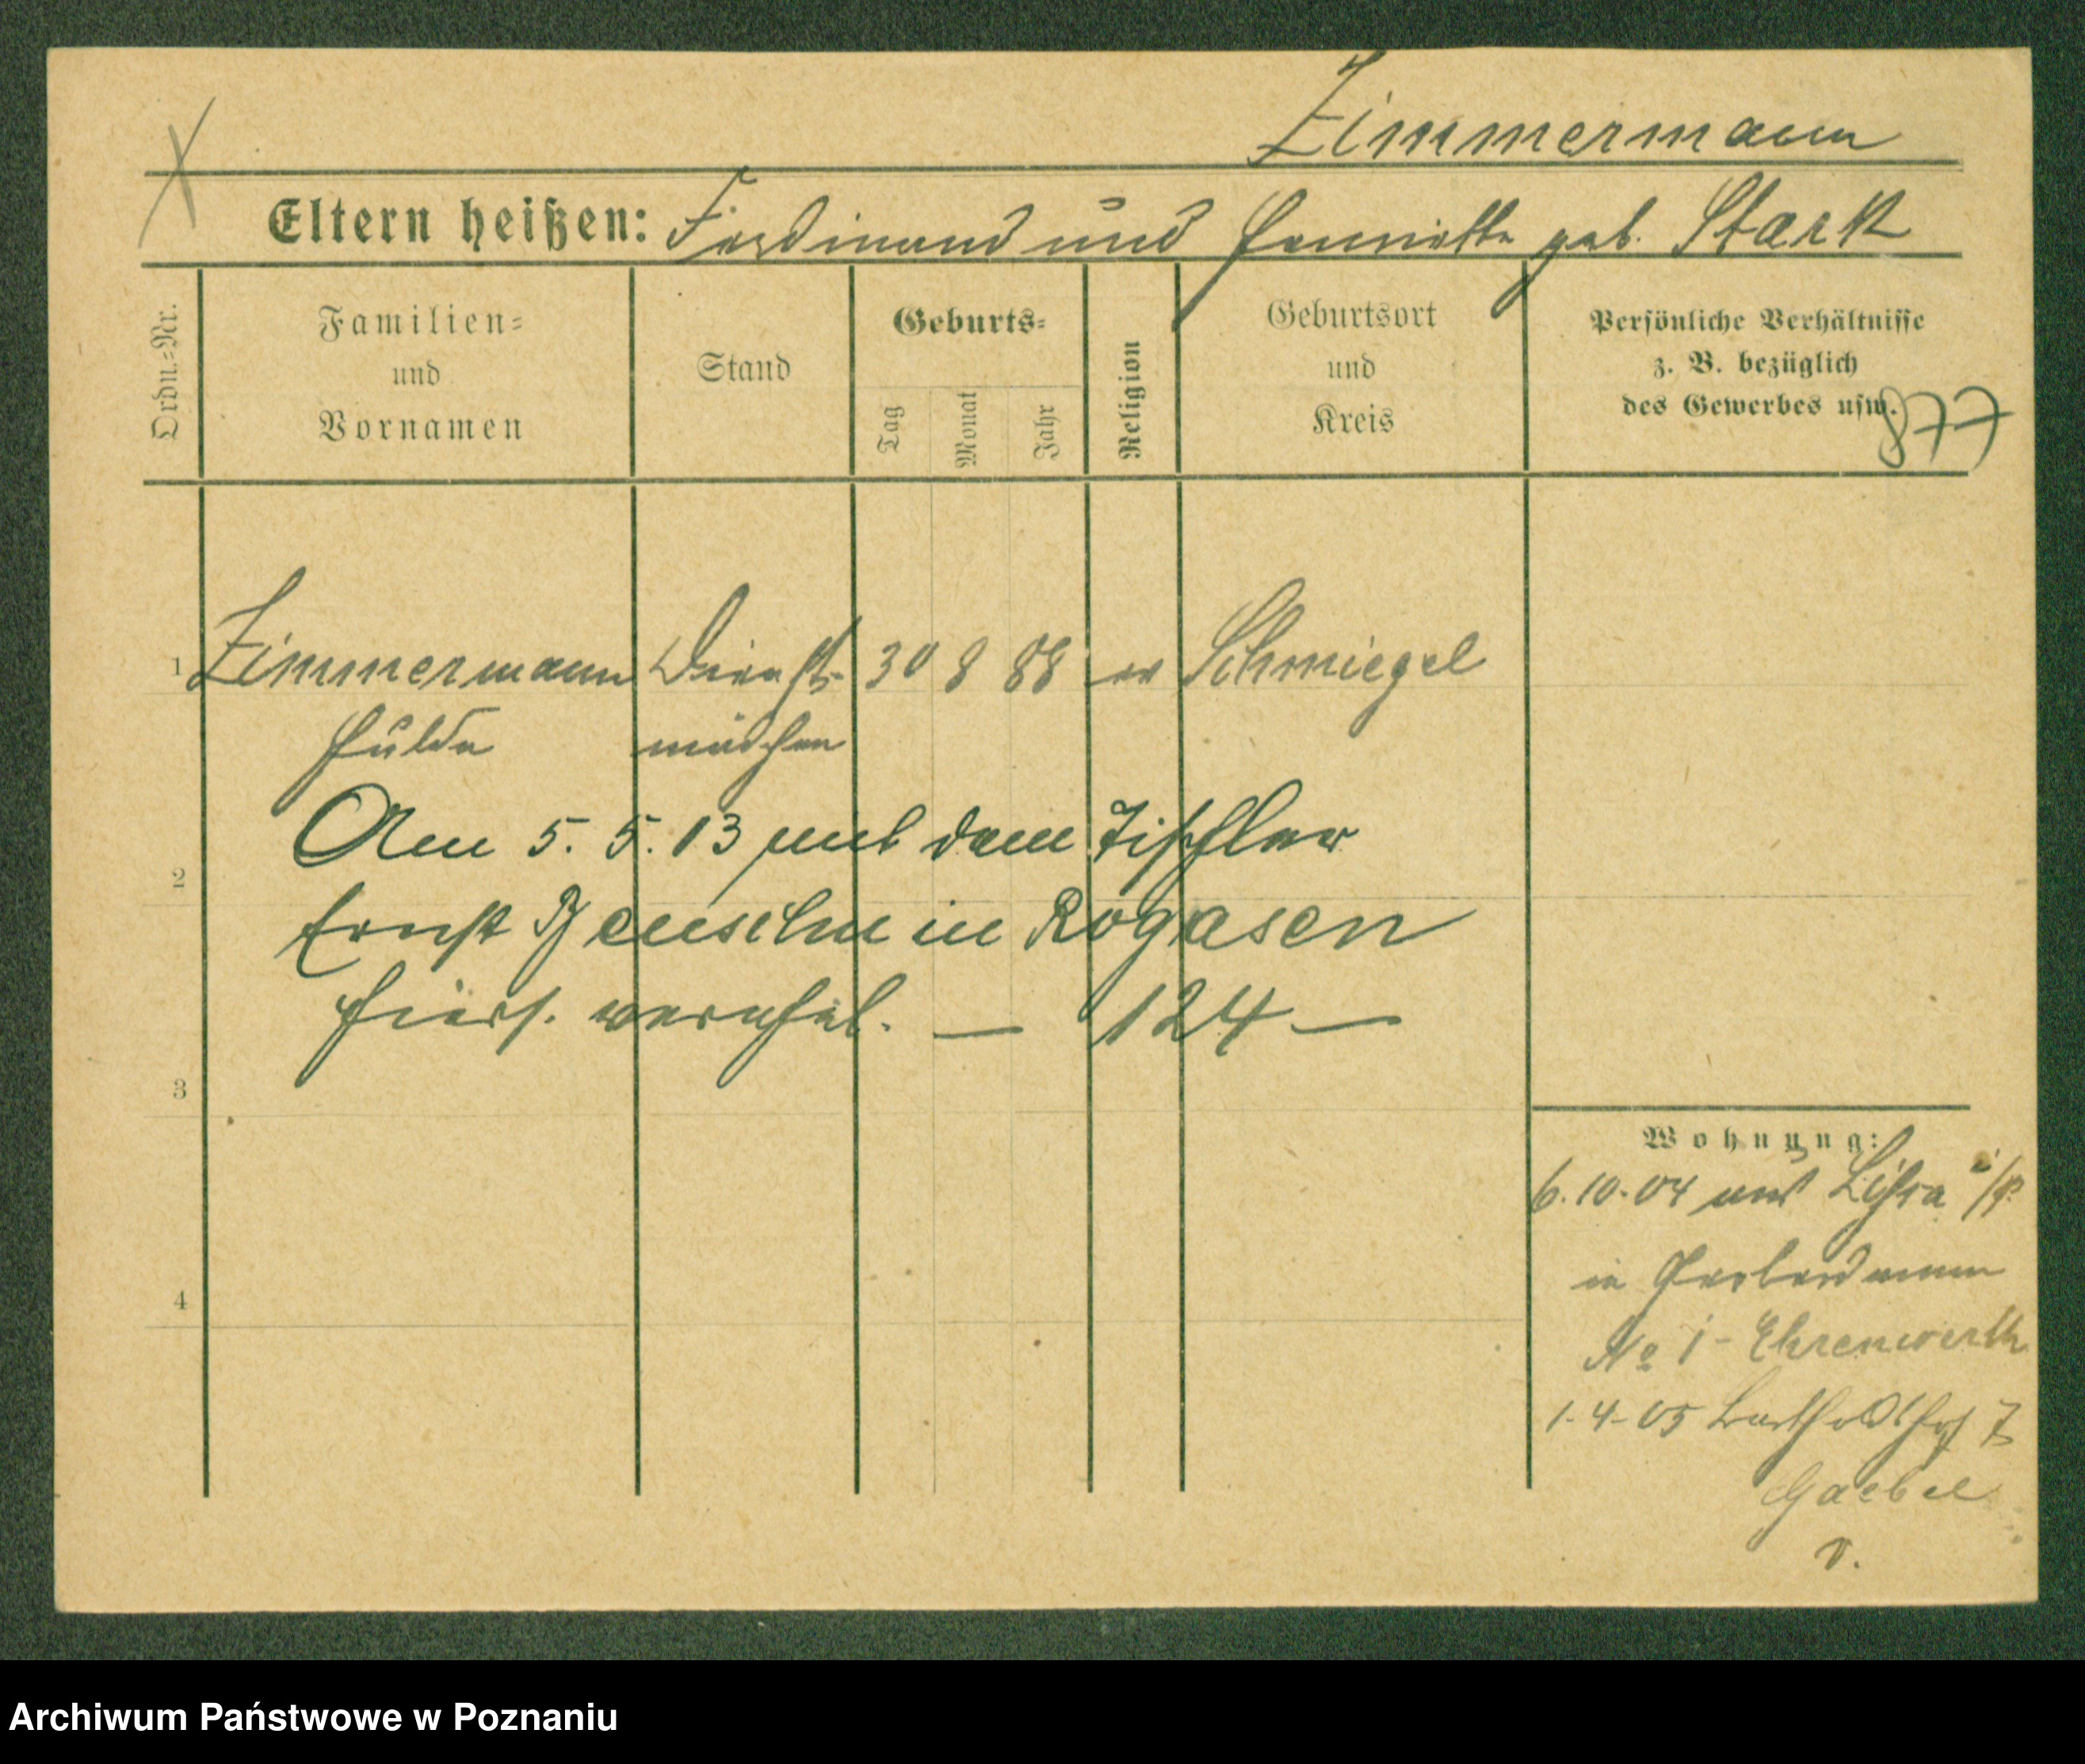 Zimmermann
Eltern heißen: Ferdinand und Henriette geb. Stark
Ordn.=Nr.
Familien=
und
Vornamen
Stand
Geburts=
Tag
Monat
Jahr
Religion
Geburtsort
und
Kreis
Persönliche Verhältnisse
z. B. bezüglich
des Gewerbes usw.
877
1 Zimmermann Dienst- 30 8 88 ev Schmiegel
Hulda mädchen
Am 5. 5. 13 mit dem Tischler
2
Ernst in Rogasen
hiers. verehel. — 124 —
3
Wohnung:
6.10.04 aus Lissa i/P.
in
4
No 1 - Ehrenwerth
1.4.05 7
Gaebel
v.
Archiwum Państwowe w Poznaniu